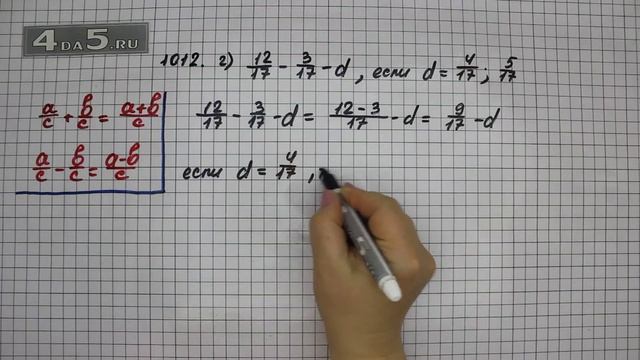 4DA5.RU
1012. г) 12/17 - 3/17 - d, если d = 4/17; 5/17
a/c + b/c = a+b/c
a/c - b/c = a-b/c
12/17 - 3/17 - d = 12-3/17 - d = 9/17 - d
если d = 4/17,